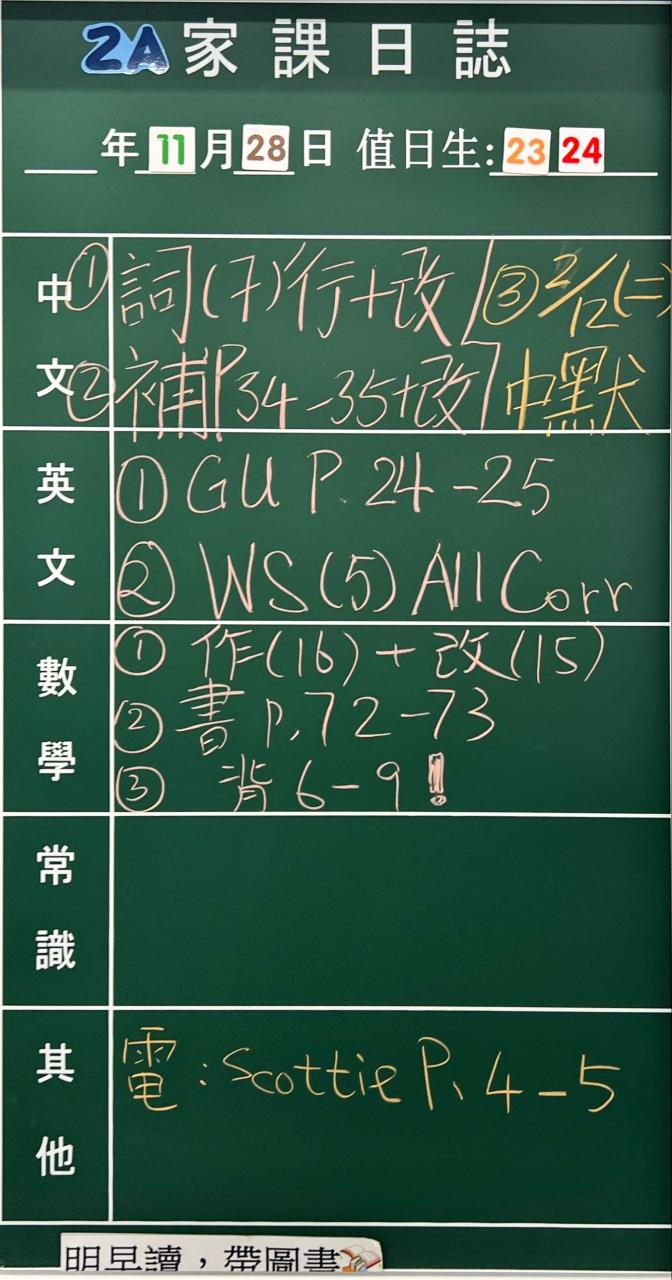 2A 家課日誌
年 11 月 28 日 值日生: 23 24
中文
① 詞(7)行+改
② 補P34-35+改
③ 2/12(二)
中默
英文
① GU P. 24-25
② WS(5) All Corr
數學
① 作(16)+改(15)
② 書 p.72-73
③ 背 6-9!
常識
其他
電:Scottie P、4-5
明早讀,帶圖書